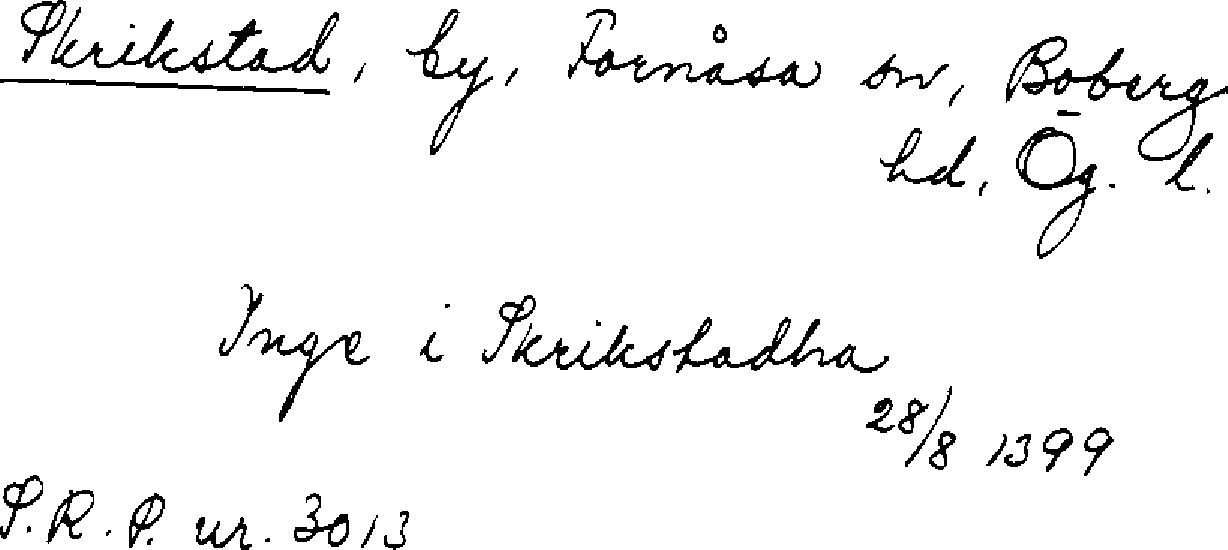 Skrikstad, by, Fornåsa sn, Boberg
hd, Ög. l.
Inge i Skrikstadha
28/8 1399
S.R.P. nr. 3013